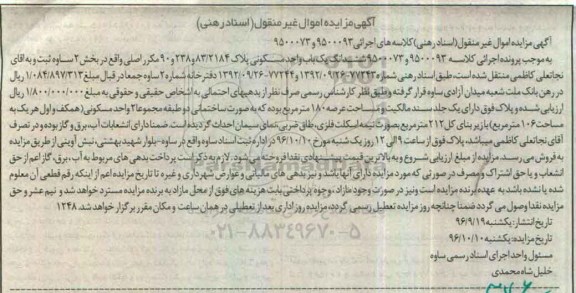 آگهی مزایده اموال غیر منقول (اسناد رهنی)
آگهی مزایده اموال غیر منقول (اسناد رهنی) کلاسه های اجرائی ۹۵۰۰۰۹۳ و ۹۵۰۰۰۷۳
به موجب پرونده اجرائی کلاسه ۹۵۰۰۰۹۳ و ۹۵۰۰۰۷۳ ششدانگ یک باب واحد مسکونی پلاک ۸۳/۲۱۸۴ و ۲۳۸ و ۹۰ مکرر اصلی واقع در بخش ۲ ساوه ثبت و به آقای
نجاتعلی کاظمی منتقل شده است، طبق اسناد رهنی شماره ۷۷۲۴۳-۱۳۹۲/۰۹/۲۶ و ۷۷۲۴۴-۱۳۹۲/۰۹/۲۶ دفترخانه شماره ۲ ساوه جمعا در قبال مبلغ ۱/۰۸۴/۸۹۷/۳۱۳ ریال
در رهن بانک ملت شعبه میدان آزادی ساوه قرار گرفته و طبق نظر کارشناس رسمی صرف نظر از بدهیهای احتمالی به اشخاص حقیقی و حقوقی به مبلغ ۱/۸۰۰/۰۰۰/۰۰۰ ریال
ارزیابی شده و پلاک فوق دارای یک جلد سند مالکیت و مساحت عرصه ۱۸۰ متر مربع بوده که به صورت ساختمانی دو طبقه مجموعا ۲ واحد مسکونی (همکف و اول هر یک به
مساحت ۱۰۶ متر مربع) با زیر بنای کل ۲۱۲ متر مربع بصورت نیمه اسکلت فلزی، طاق ضربی، نمای سیمان احداث گردیده است. ضمنا دارای انشعابات آب، برق و گاز بوده و در تصرف
آقای نجاتعلی کاظمی میباشد، پلاک فوق از ساعت ۹ الی ۱۲ روز یک شنبه مورخ ۹۶/۱۰/۱۰ در اداره ثبت اسناد ساوه واقع در ساوه- بلوار شهید بهشتی، نبش آوینی از طریق مزایده
به فروش می رسد. مزایده از مبلغ ارزیابی شروع و به بالاترین قیمت پیشنهادی نقدا فروخته می شود. لازم به ذکر است پرداخت بدهی های مربوطه به آب، برق، گاز اعم از حق
انشعاب و یا حق اشتراک و مصرف در صورتی که مورد مزایده دارای آنها باشد و نیز بدهی های مالیاتی و عوارض شهرداری و غیره تا تاریخ مزایده اعم از اینکه رقم قطعی آن معلوم
شده یا نشده باشد به عهده برنده مزایده است و نیز در صورت وجود مازاد، وجوه پرداختی بابت هزینه های فوق از محل مازاد به برنده مزایده مسترد خواهد شد و نیم عشر و حق
مزایده نقدا وصول می گردد ضمنا چنانچه روز مزایده تعطیل رسمی گردد، مزایده روز اداری بعد از تعطیلی در همان ساعت و مکان مقرر برگزار خواهد شد. ۱۲۴۸
تاریخ انتشار: یکشنبه ۹۶/۹/۱۹
تاریخ مزایده: یکشنبه ۹۶/۱۰/۱۰
مسئول واحد اجرای اسناد رسمی ساوه
خلیل شاه محمدی
۰۲۱-۸۸۳۴۹۶۷۰-۵